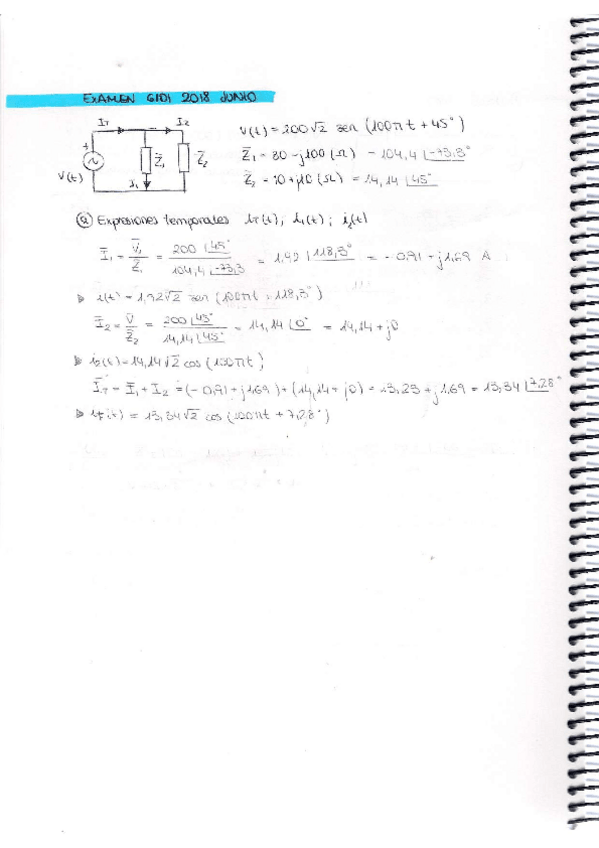 EXAMEN GIDI 2018 JUNIO
I_T I_2
V(t) + Z̄_1 Z̄_2 I_1
V(t) = 200√2 sen (100πt + 45°)
Z̄_1 = 30 - j100 (Ω) = 104,4 |-73,3°
Z̄_2 = 10 + j10 (Ω) = 14,14 |45°
ⓐ Expresiones temporales i_T(t); i_1(t); i_2(t)
Ī_1 = V̄_1 / Z̄_1 = 200 |45° / 104,4 |-73,3 = 1,92 |118,3° = -0,91 + j1,69 A
▷ i(t) = 1,92√2 sen (100πt + 118,3°)
Ī_2 = V̄ / Z̄_2 = 200 |45° / 14,14 |45° = 14,14 |0° = 14,14 + j0
▷ i_2(t) = 14,14√2 cos (100πt)
Ī_T = Ī_1 + Ī_2 = (-0,91 + j1,69) + (14,14 + j0) = 13,23 + j1,69 = 13,34 |7,28°
▷ i_T(t) = 13,34√2 cos (100πt + 7,28°)